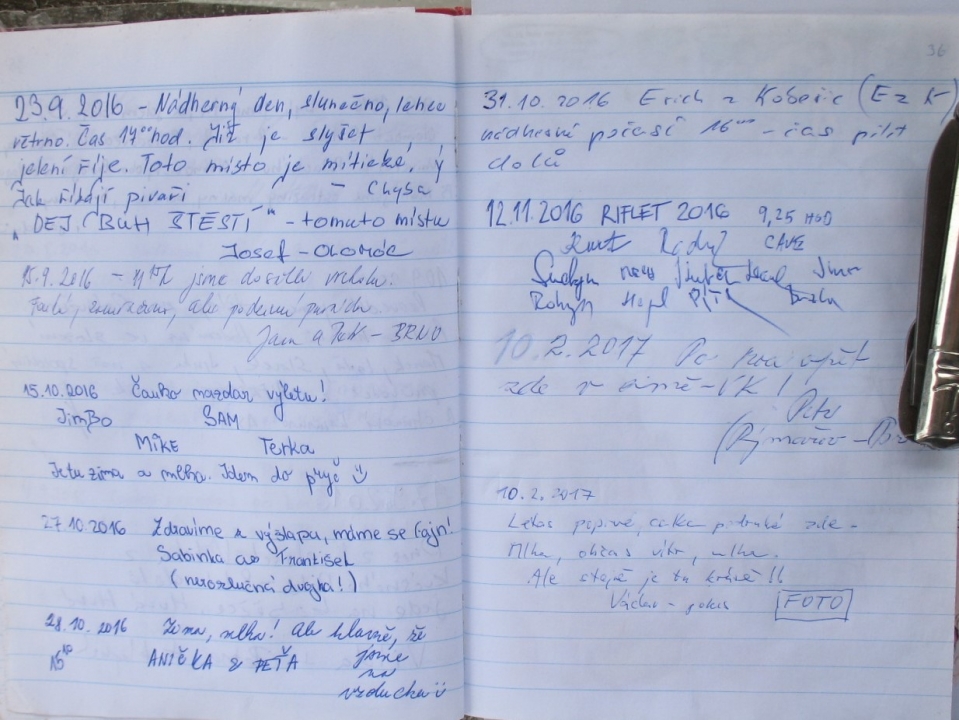 23.9.2016 - Nádherný den, slunečno, lehce
větrno. Čas 14ºº hod. Již je slyšet
jelení říje. Toto místo je mitické, ý
Jak říkají pivaři - Chyba
„DEJ BŮH ŠTĚSTÍ" - tomuto místu
Josef - OLOMÓC
15.9.2016 - jsme
ale
Jana a Petr - BRNO
15.10.2016 Čauko nazdar výletu!
JimBo SAM
Mike Terka
Je tu zima a mlha. Idem do pryč
27.10.2016 Zdravíme z výšlapu, máme se fajn!
Sabinka a František
(nerozlučná dvojka!)
28.10.2016 Zima, mlha! Ale hlavně, že
ANIČKA & PEŤA jsme
na
vzduchu
36
31.10.2016 Erich z Kobeřic (E z K)
nádherné počasí 16ººº - čas pilit
dolů
12.11.2016 RIFLET 2016 9,25 HOD
CAVE
10.2.2017 Po roce opět
zde v zimě - VK!
Petr
10.2.2017
Letos poprvé, zde -
Mlha, občas vítr, mlha.
Ale stejně je tu krásně!!
Václav - FOTO